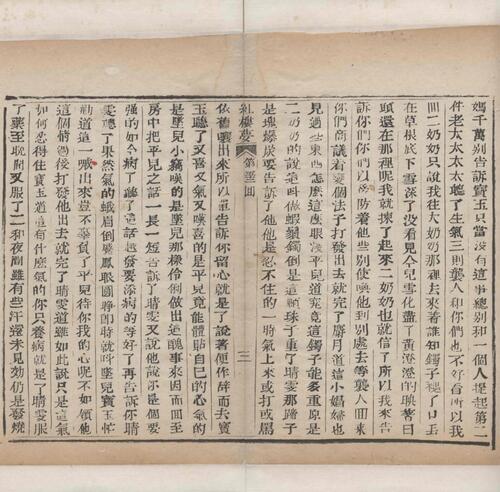 媽千萬别告訴寳玉只當沒有這事總别和一個人提起第二
件老太太太太聽了生氣三則襲人和你們也不好看所以我
囬二奶奶只說我往大奶奶那裡去來着誰知鐲子褪了口丢
在草根底下雪深了沒看見今兒雪化盡了黃澄澄的映著日
頭還在那裡呢我就揀了起來二奶奶也就信了所以我來告
訴你們你們以後防着他些别使喚他到别處去等襲人囬來
你們商議着變個法子打發出去就完了麝月道這小娼婦也
見過些東西怎麽這麽眼淺平兒道究竟這鐲子能多重原是
二奶奶的說這叫做蝦鬚鐲倒是這顆珠子重了晴雯那蹄子
是塊爆炭要告訴了他他是忍不住的一時氣上來或打或罵
紅樓夢 第五十二囬 三
依舊嚷出來所以單告訴你留心就是了說著便作辭而去寳
玉聽了又喜又氣又嘆喜的是平兒竟能體貼自己的心氣的
是墜兒小竊嘆的是墜兒那樣伶俐做出這醜事來因而囬至
房中把平兒之話一長一短告訴了晴雯又說他說你是個要
强的如今病了聽了這話越發要添病的等好了再告訴你晴
雯聽了果然氣的蛾眉倒蹙鳳眼圓睜即時就叫墜兒寳玉忙
勸道這一喊出來豈不辜負了平兒待你我的心呢不如領他
這個情過後打發他出去就完了晴雯道雖如此說只是這氣
如何忍得住寳玉道這有什麽氣的你只養病就是了晴雯服
了藥至晚間又服了二和夜間雖有些汗還未見効仍是發燒